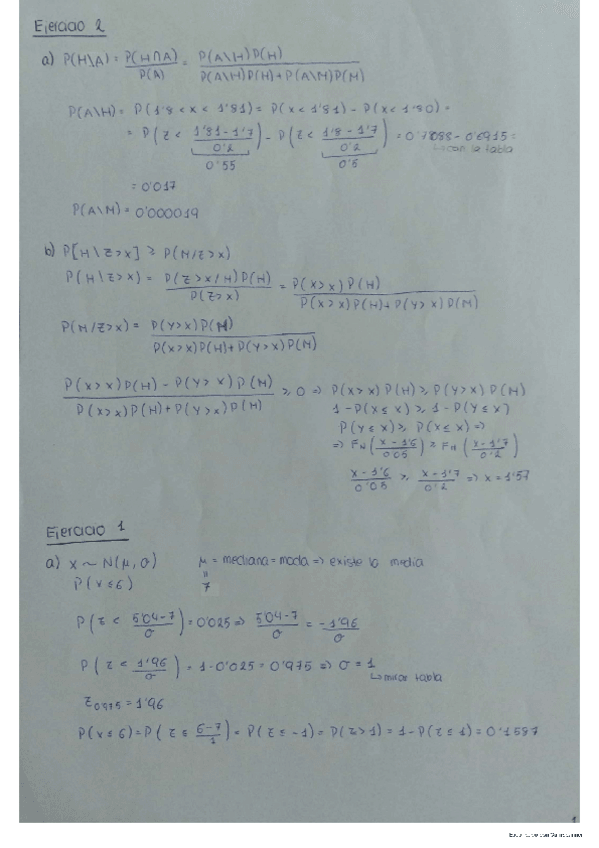 Ejercicio 2
a) P(H\A) = P(H∩A) / P(A) = P(A\H)P(H) / P(A\H)P(H)+P(A\M)P(M)
P(A\H) = P(1'8 < x < 1'81) = P(x < 1'81) - P(x < 1'80) =
= P(Z < (1'81-1'7)/0'2) - P(Z < (1'8-1'7)/0'2) = 0'7088-0'6915 =
0'55 0'5 ↳ con la tabla
= 0'017
P(A\M) = 0'000019
b) P[H\Z>x] ≥ P(M/Z>x)
P(H\Z>x) = P(Z>x/H)P(H) / P(Z>x) = P(X>x)P(H) / P(X>x)P(H)+P(Y>x)P(M)
P(M/Z>x) = P(Y>x)P(M) / P(X>x)P(H)+P(Y>x)P(M)
P(X>x)P(H) - P(Y>x)P(M) / P(X>x)P(H)+P(Y>x)P(M) ≥ 0 => P(X>x)P(H) ≥ P(Y>x)P(M)
1-P(X≤x) ≥ 1-P(Y≤x)
P(Y≤x) ≥ P(X≤x) =>
=> FN((x-1'6)/0'05) ≥ FN((x-1'7)/0'2)
(x-1'6)/0'05 ≥ (x-1'7)/0'2 => x = 1'57
Ejercicio 1
a) x ~ N(μ, σ) μ = mediana = moda => existe la media
P(x≤6) " 7
P(z < (5'04-7)/σ) = 0'025 => (5'04-7)/σ = -1'96/σ
P(z < 1'96/σ) = 1-0'025 = 0'975 => σ = 1
↳ mirar tabla
Z0'975 = 1'96
P(x≤6) = P(z ≤ (6-7)/1) = P(z ≤ -1) = P(z>1) = 1-P(z≤1) = 0'1587
1